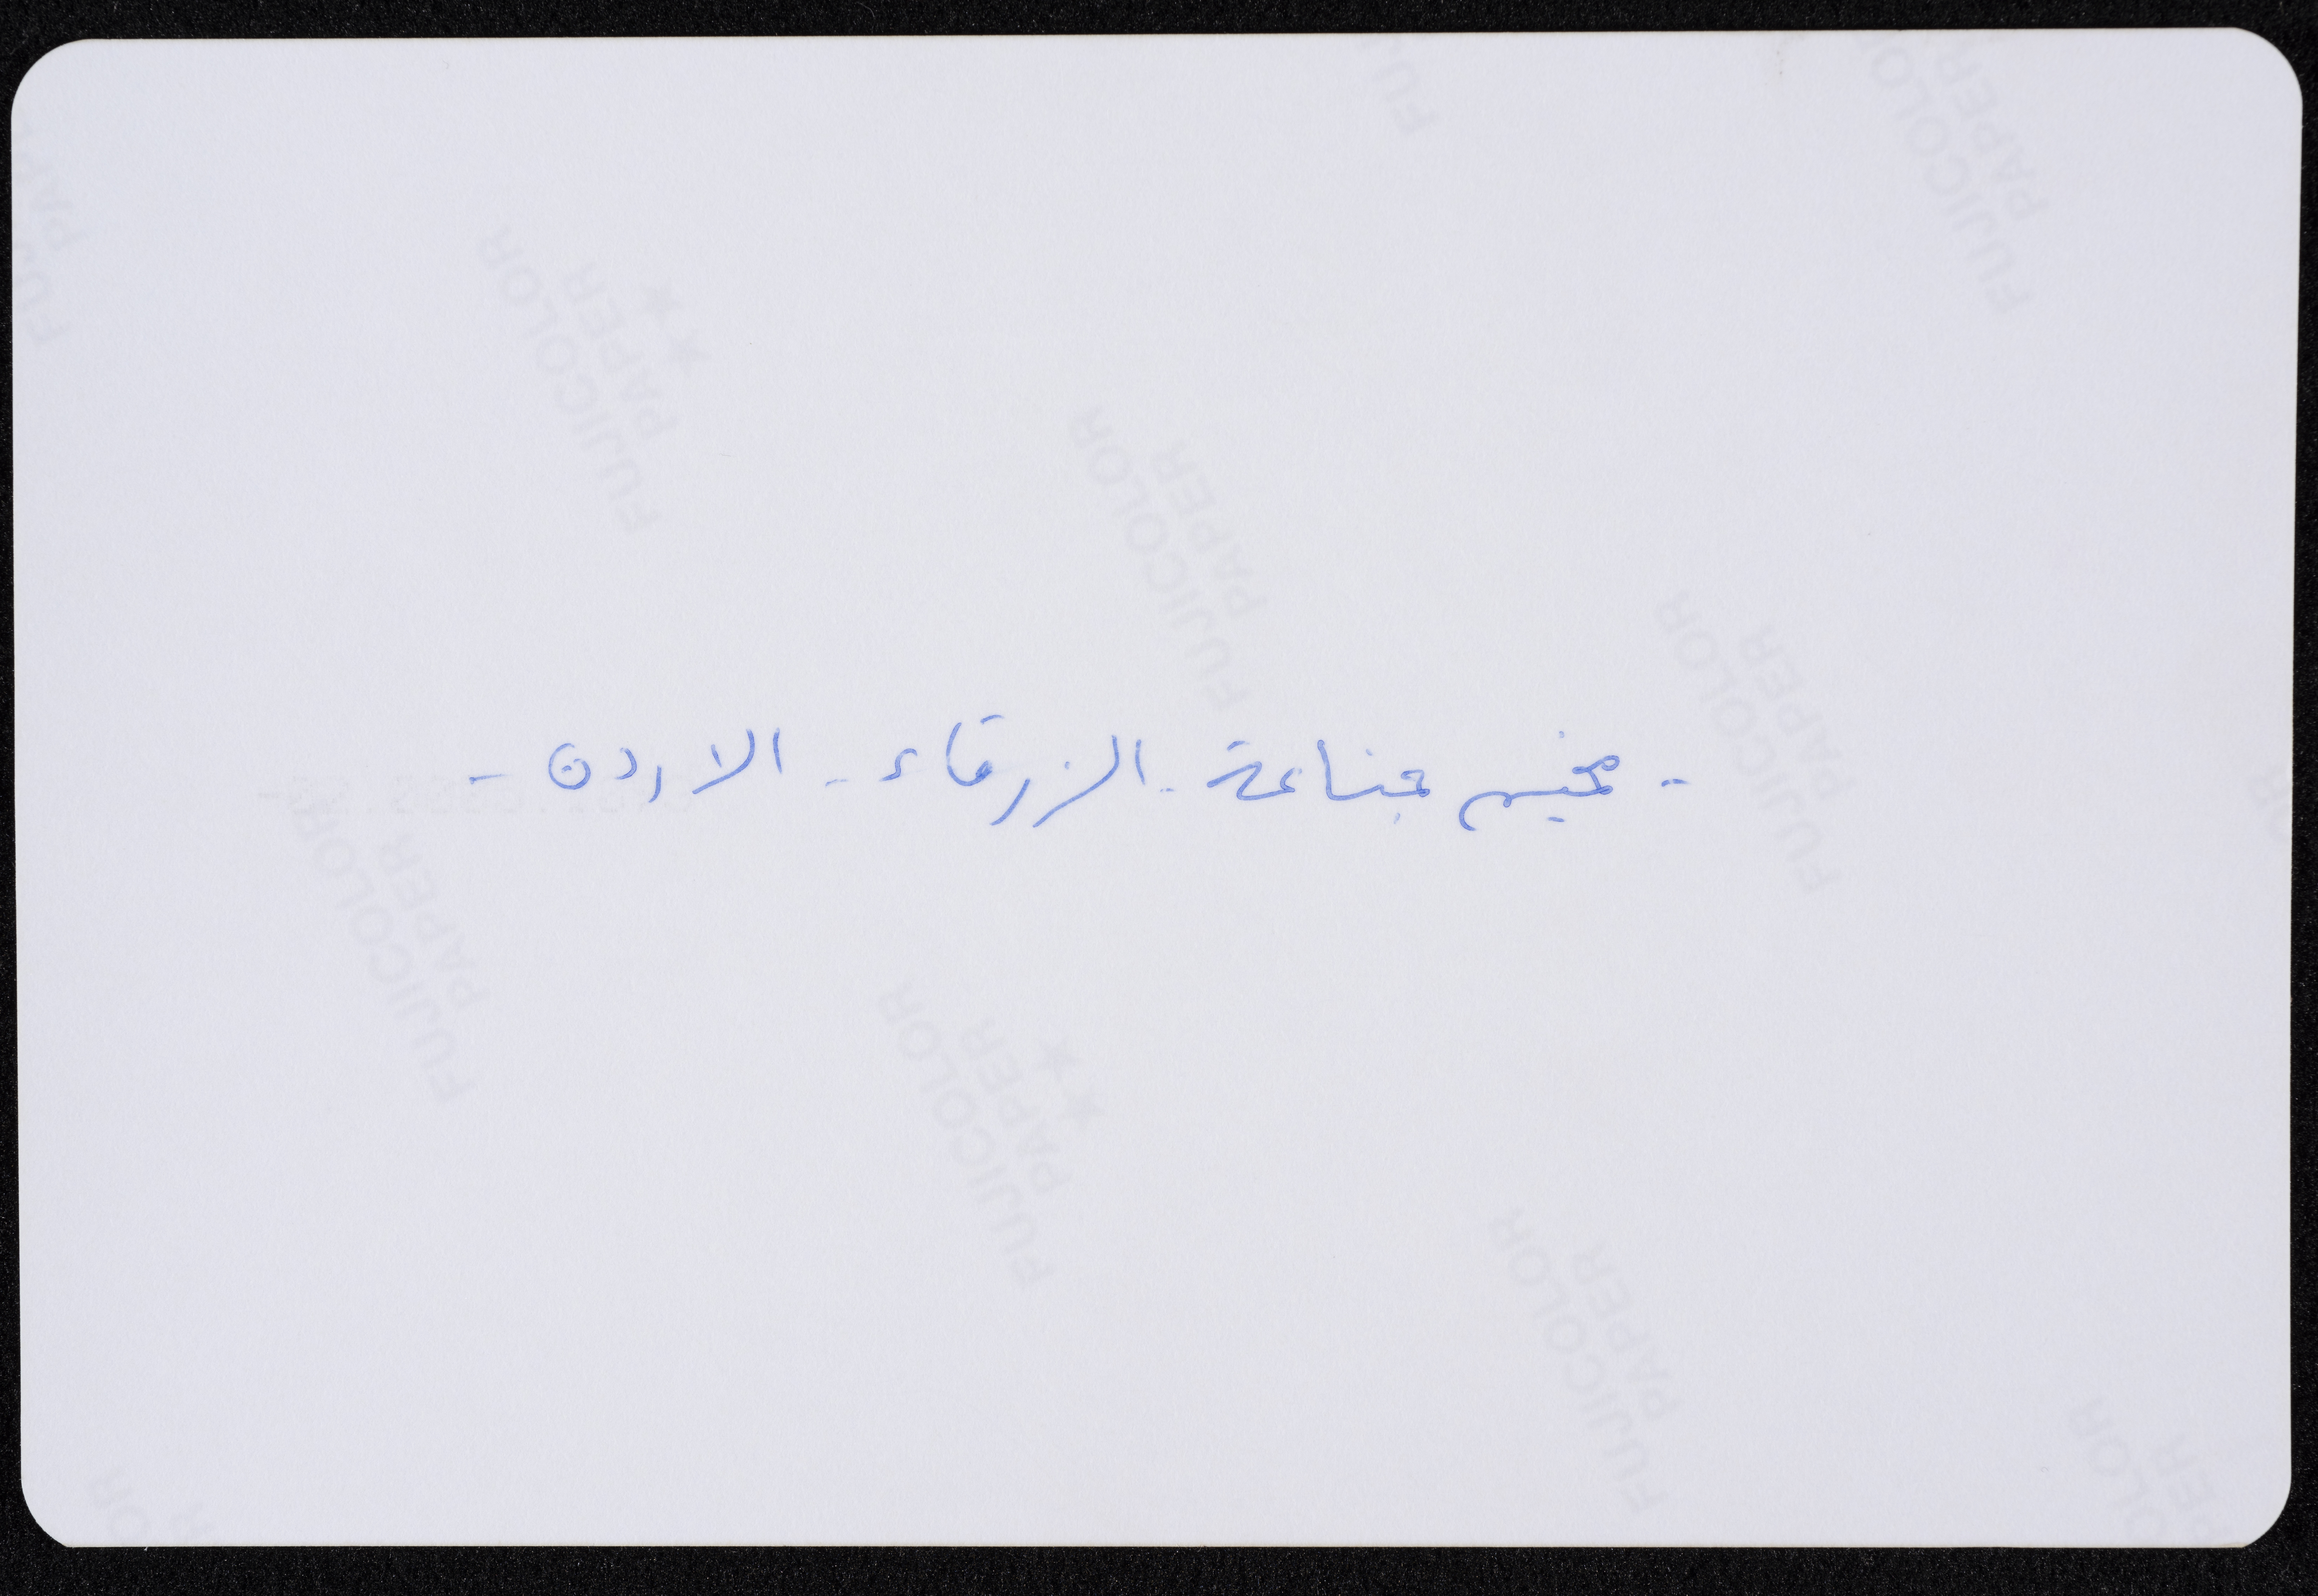 - مخيم جناعة - الزرقاء - الاردن -
FUJICOLOR
PAPER
FUJICOLOR
PAPER
FUJICOLOR
PAPER
FUJICOLOR
PAPER
FUJICOLOR
PAPER
FUJICOLOR
PAPER
FUJICOLOR
PAPER